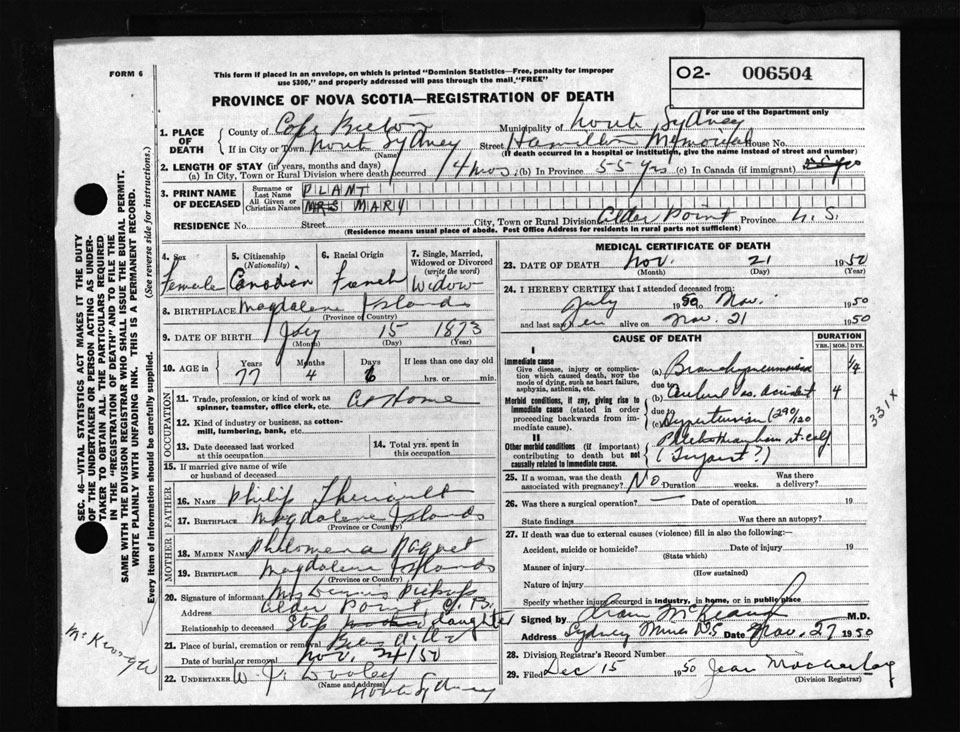 FORM 6
This form if placed in an envelope, on which is printed "Dominion Statistics—Free, penalty for improper
use $300," and properly addressed will pass through the mail, "FREE"
O2- 006504
For use of the Department only
PROVINCE OF NOVA SCOTIA—REGISTRATION OF DEATH
1. PLACE OF DEATH
County of Cape Breton Municipality of North Sydney
If in City or Town North Sydney (Name) Street Hamilton Memorial House No.
(If death occurred in a hospital or institution, give the name instead of street and number)
2. LENGTH OF STAY (in years, months and days)
(a) In City, Town or Rural Division where death occurred 14 hrs. (b) In Province 55 yrs (c) In Canada (if immigrant)
3. PRINT NAME OF DECEASED
Surname or Last Name PLANT
All Given or Christian Names MRS MARY
RESIDENCE No. Street City, Town or Rural Division Alder Point Province N.S.
(Residence means usual place of abode. Post Office Address for residents in rural parts not sufficient)
4. Sex Female
5. Citizenship (Nationality) Canadian
6. Racial Origin French
7. Single, Married, Widowed or Divorced (write the word) Widow
8. BIRTHPLACE Magdalene Islands
(Province or Country)
9. DATE OF BIRTH July 15 1873
(Month) (Day) (Year)
10. AGE in Years Months Days If less than one day old
77 4 6 hrs. or min.
OCCUPATION
11. Trade, profession, or kind of work as spinner, teamster, office clerk, etc. At Home
12. Kind of industry or business, as cotton-mill, lumbering, bank, etc.
13. Date deceased last worked at this occupation
14. Total yrs. spent in this occupation
15. If married give name of wife or husband of deceased
FATHER
16. NAME Philip Theriault
17. BIRTHPLACE Magdalene Islands
(Province or Country)
MOTHER
18. MAIDEN NAME Philomena
19. BIRTHPLACE Magdalene Islands
(Province or Country)
20. Signature of informant Mrs Dennis
Address Alder Point, C.B.
Relationship to deceased Step daughter
21. Place of burial, cremation or removal
Date of burial or removal Nov. 24/50
22. UNDERTAKER W. J. Dooley
(Name and address)
North Sydney
MEDICAL CERTIFICATE OF DEATH
23. DATE OF DEATH Nov. 21 1950
(Month) (Day) (Year)
24. I HEREBY CERTIFY that I attended deceased from:
July 1950 to Nov. 1950
and last saw her alive on Nov. 21 1950
CAUSE OF DEATH
DURATION
YRS. MOS. DYS.
I
Immediate cause
Give disease, injury or complication which caused death, NOT the mode of dying, such as heart failure, asphyxia, asthenia, etc.
(a) Bronchopneumonia
due to
Morbid conditions, if any, giving rise to immediate cause (stated in order proceeding backwards from immediate cause).
(b) Cerebral Vas. Accident 4
due to
(c) Hypertension
II
Other morbid conditions (if important) contributing to death but not causally related to immediate cause.
331 X
25. If a woman, was the death associated with pregnancy? No Duration weeks. Was there a delivery?
26. Was there a surgical operation? Date of operation 19
State findings Was there an autopsy?
27. If death was due to external causes (violence) fill in also the following:—
Accident, suicide or homicide? Date of injury 19
(State which)
Manner of injury
(How sustained)
Nature of injury
Specify whether injury occurred in industry, in home, or in public place
Signed by M.D.
Address Sydney Mines N.S Date Nov. 27 1950
28. Division Registrar's Record Number
29. Filed Dec 15 1950 Jean
(Division Registrar)
SEC. 46—VITAL STATISTICS ACT MAKES IT THE DUTY
OF THE UNDERTAKER OR PERSON ACTING AS UNDER-
TAKER TO OBTAIN ALL THE PARTICULARS REQUIRED
IN THE "REGISTRATION OF DEATH" AND TO FILE THE
SAME WITH THE DIVISION REGISTRAR WHO SHALL ISSUE THE BURIAL PERMIT.
WRITE PLAINLY WITH UNFADING INK. THIS IS A PERMANENT RECORD.
Every item of information should be carefully supplied. (See reverse side for instructions.)